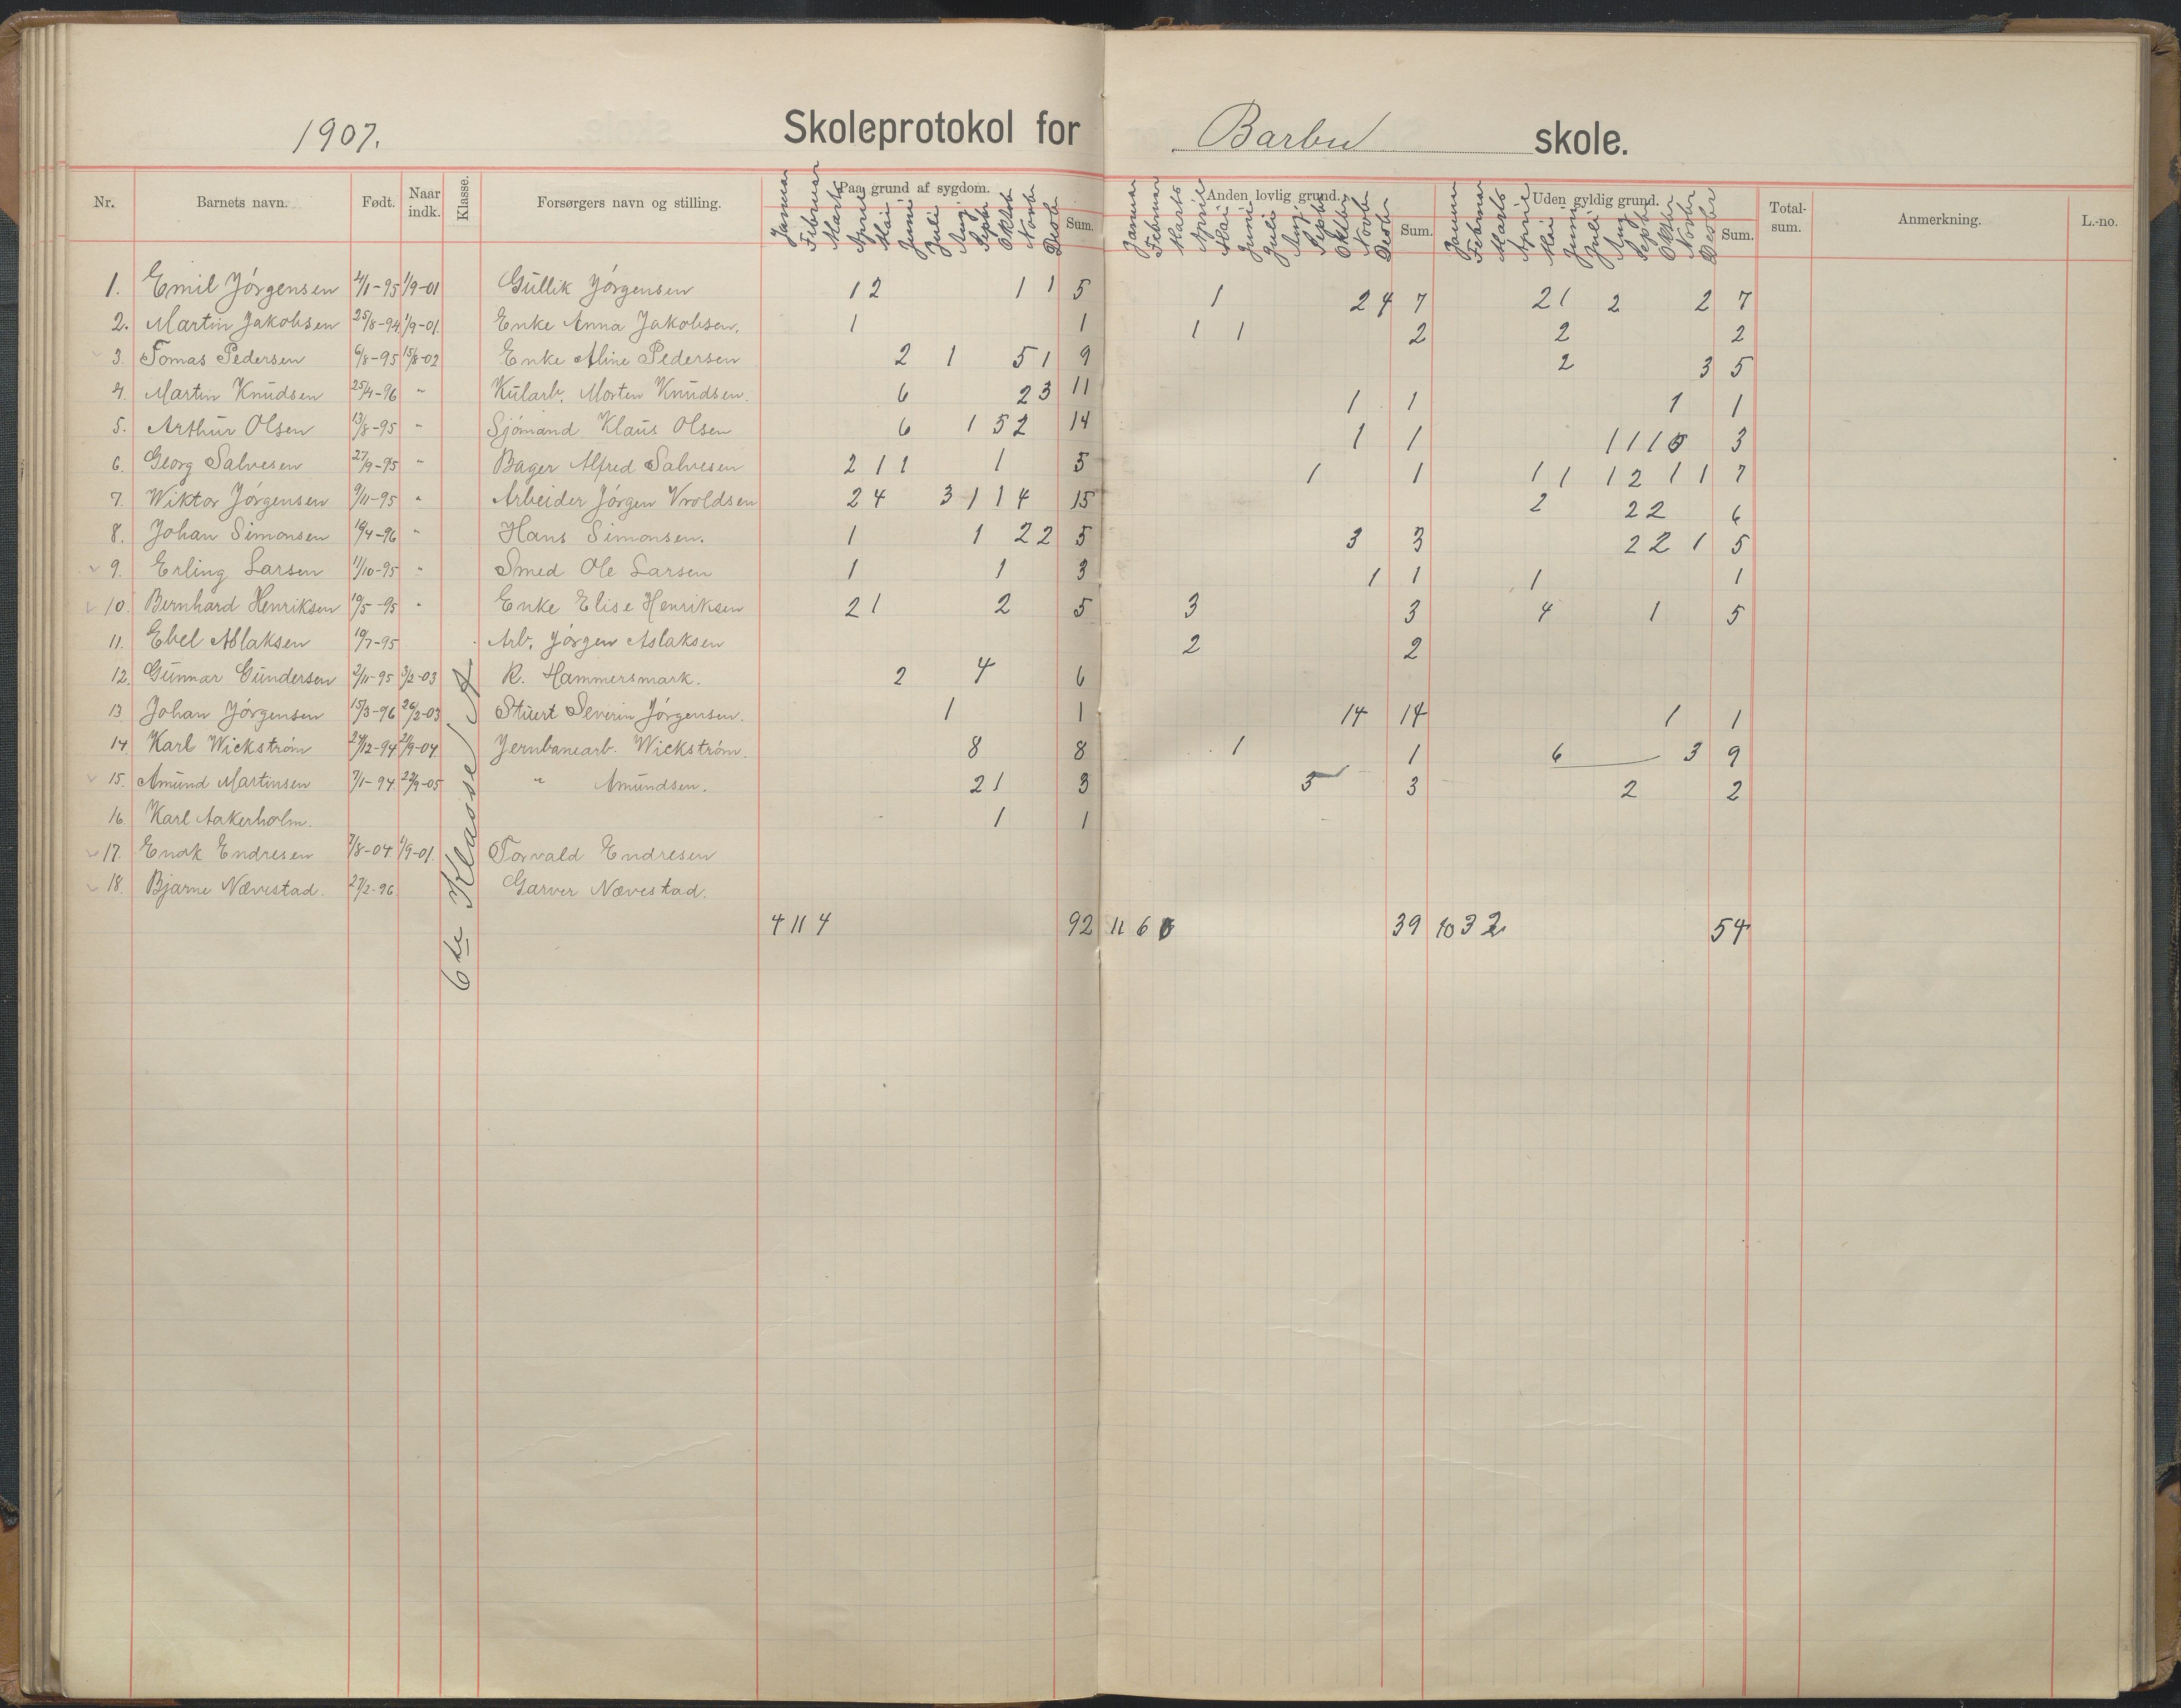 1907. Skoleprotokol for Barbu skole.
Nr. Barnets navn. Født. Naar indk. Klasse. Forsørgers navn og stilling. Paa grund af sygdom. Sum. Anden lovlig grund. Sum. Uden gyldig grund. Sum. Total-sum. Anmerkning. L.-no.
Januar Februar Marts April Mai Juni Juli Aug Septbr Oktob Novbr Desbr Januar Februar Marts April Mai Juni Juli Aug Septbr Oktbr Novbr Desbr Januar Februar Marts April Mai Juni Juli Aug Septbr Oktbr Novbr Desbr
1. Emil Jörgensen 4/1-95 1/9-01 Gullik Jörgensen 1 2 1 1 5 1 2 4 7 2 1 2 2 7
2. Martin Jakobsen 25/8-94 1/9-01. Enke Anna Jakobsen. 1 1 1 1 2 2 2
3. Tomas Pedersen 6/8-95 15/8-02 Enke Aline Pedersen 2 1 5 1 9 2 3 5
4. Martin Knudsen 25/4-96 " Kularb. Morten Knudsen. 6 2 3 11 1 1 1 1
5. Arthur Olsen 13/8-95 " Sjömand Klaus Olsen 6 1 5 2 14 1 1 1 1 1 3
6. Georg Salvesen 27/9-95 " Bager Alfred Salvesen 2 1 1 1 5 1 1 1 1 1 2 1 1 7
7. Wiktor Jörgensen 9/11-95 " Arbeider Jörgen Vroldsen 2 4 3 1 1 4 15 2 2 2 6
8. Johan Simonsen 19/4-96 " Hans Simonsen. 1 1 2 2 5 3 3 2 2 1 5
9. Erling Larsen 11/10-95 " Smed Ole Larsen 1 1 3 1 1 1 1
10. Bernhard Henriksen 19/5-95 " Enke Elise Henriksen 2 1 2 5 3 3 4 1 5
11. Ebel Aslaksen 19/7-95 Arb. Jörgen Aslaksen 2 2
12. Gunnar Gundersen 2/11-95 3/2-03 R. Hammersmark. 2 4 6
13 Johan Jörgensen 15/3-96 26/2-03 Stuert Severin Jörgensen. 1 1 14 14 1 1
14. Karl Wickström 24/12-94 2/9-04. Jernbanearb. Wickström. 8 8 1 1 6 3 9
15. Amund Martinsen 7/1-94. 29/9-05 " Amundsen. 2 1 3 3 3 2 2
16. Karl Aakerholm. 1 1
17. Enok Endresen 7/8-04 1/9-01. Torvald Endresen
18. Bjarne Nævestad. 27/2-96 Garver Nævestad.
6te Klasse A
4 11 4 92 11 6 39 10 3 2 54